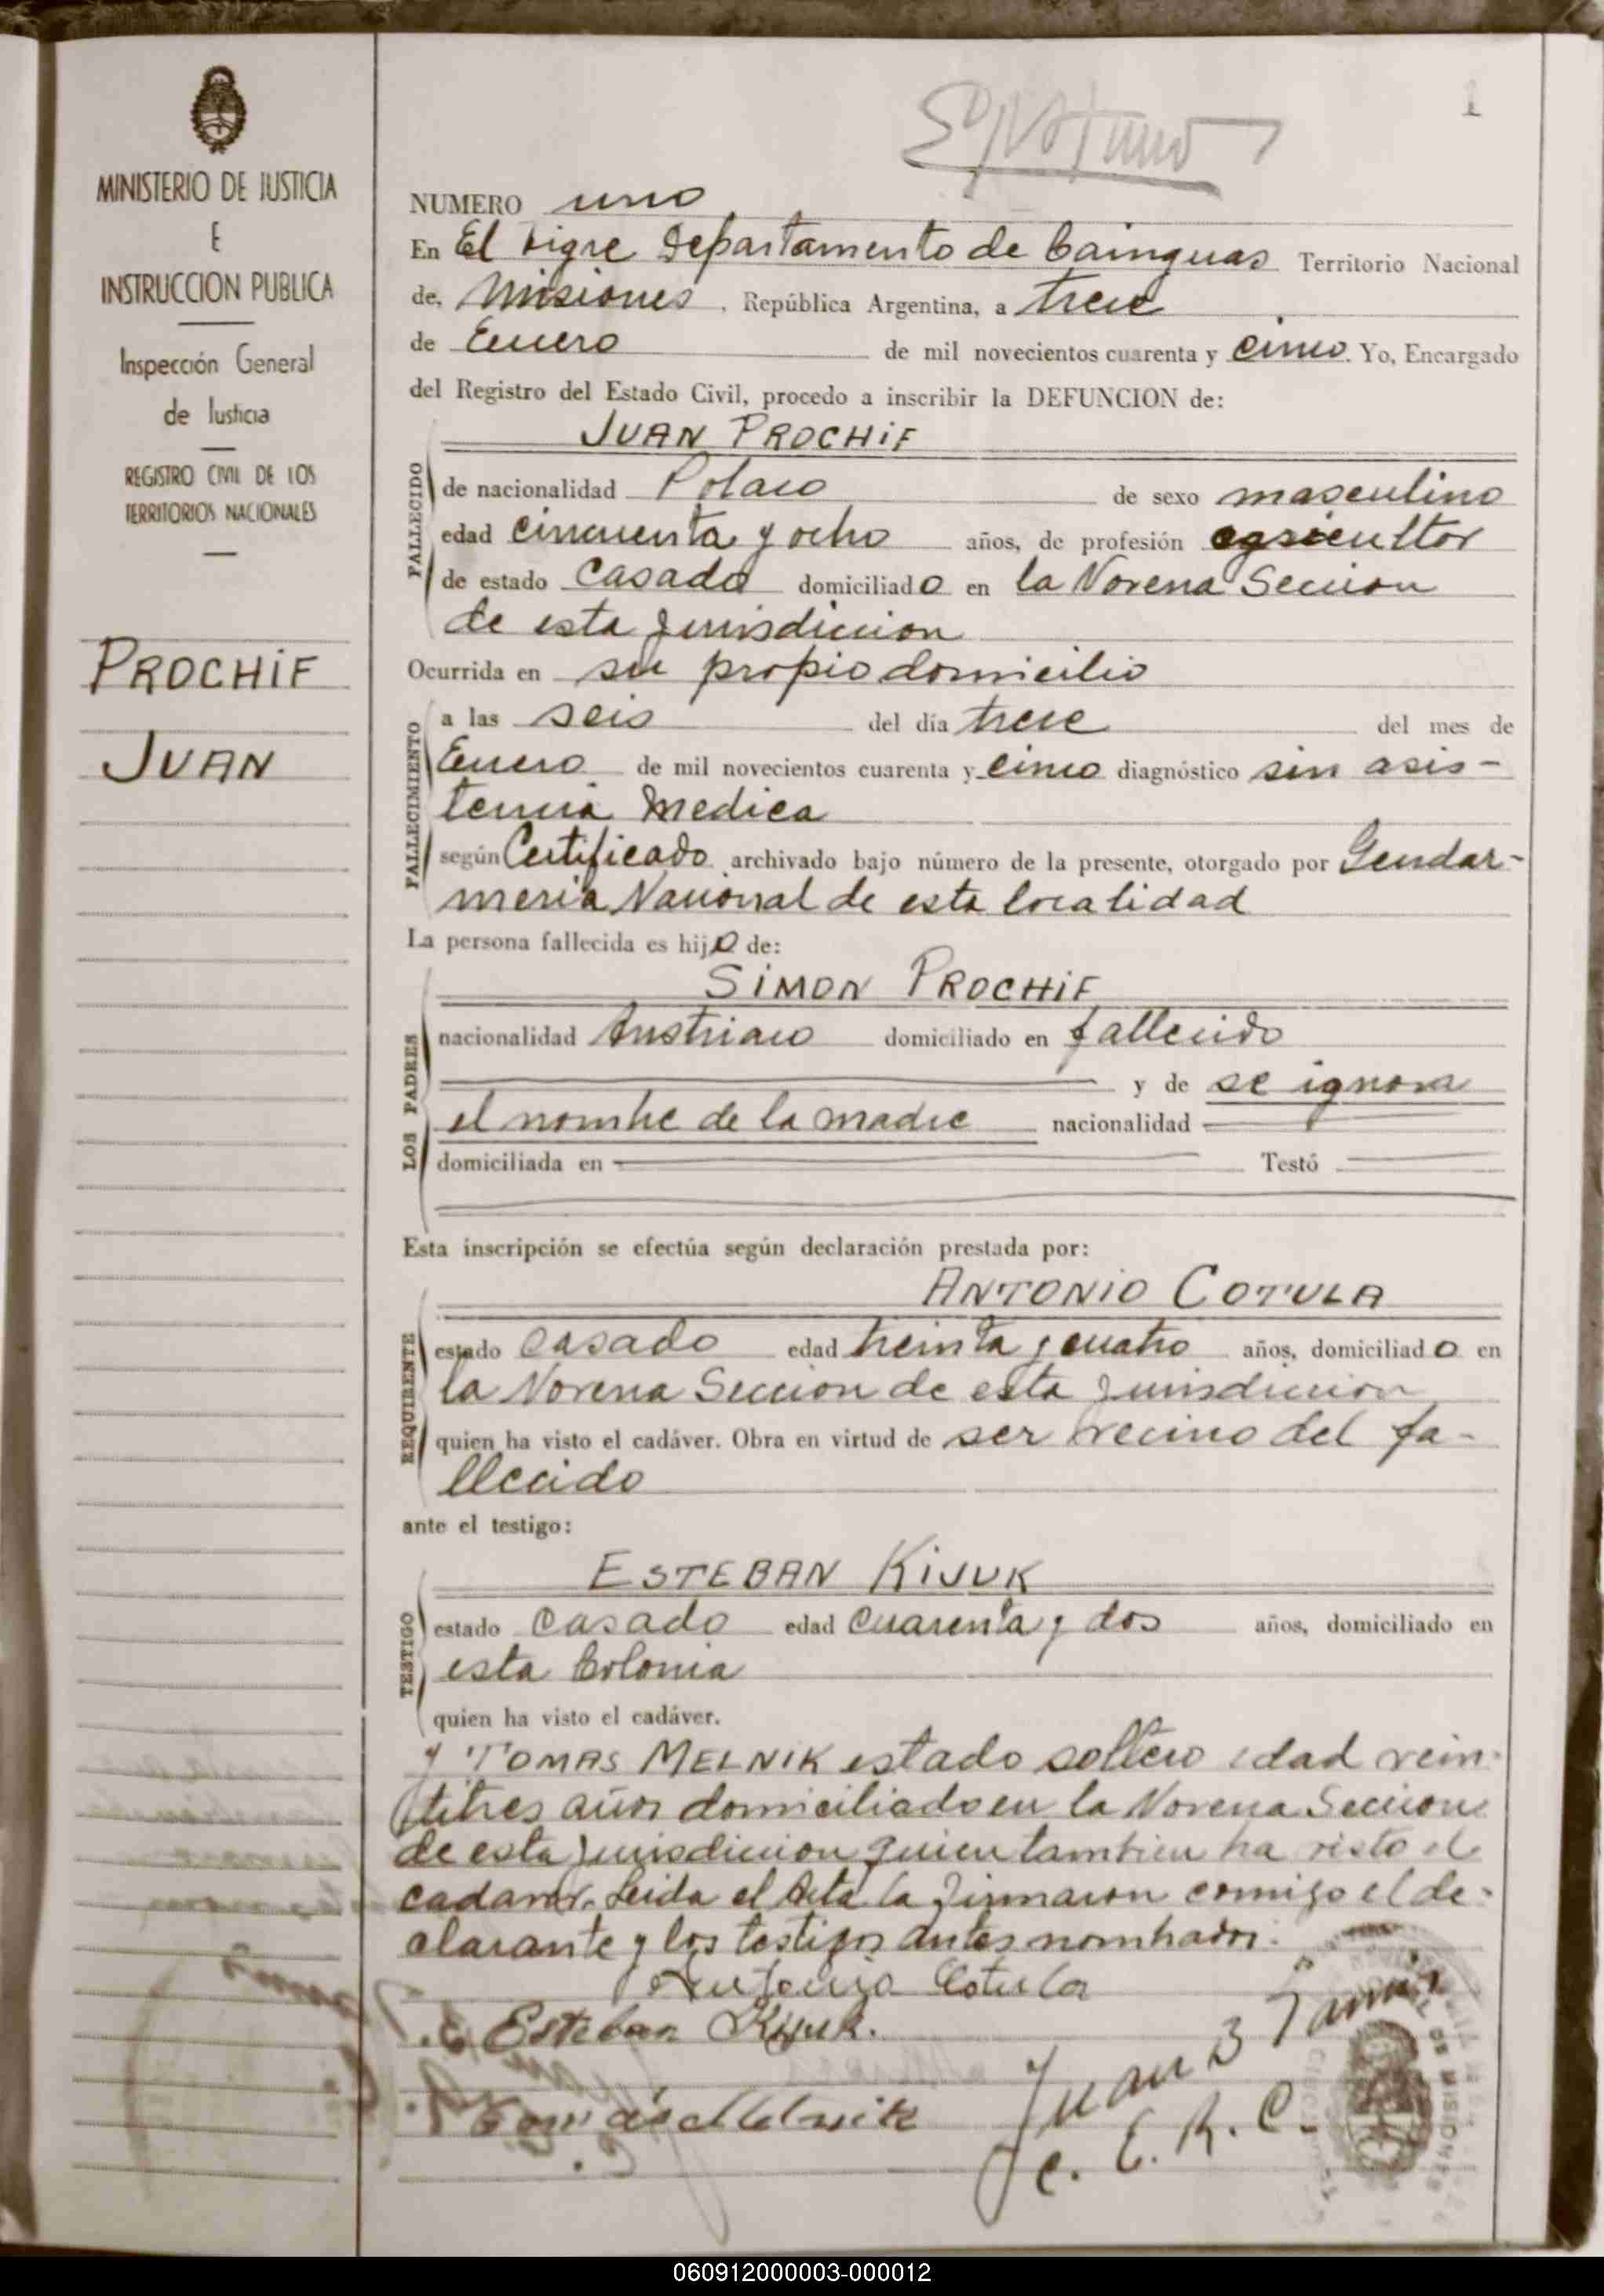 MINISTERIO DE JUSTICIA
E
INSTRUCCION PUBLICA
Inspección General
de Justicia
REGISTRO CIVIL DE LOS
TERRITORIOS NACIONALES
PROCHIF
JUAN
1
NUMERO uno
En El tigre Departamento de Cainguas Territorio Nacional
de, Misiones, República Argentina, a trece
de Enero de mil novecientos cuarenta y cinco. Yo, Encargado
del Registro del Estado Civil, procedo a inscribir la DEFUNCION de:
JUAN PROCHIF
FALLECIDO
de nacionalidad Polaco de sexo masculino
edad cincuenta y ocho años, de profesión agricultor
de estado Casado domiciliado en la Novena Seccion
de esta Jurisdiccion
Ocurrida en su propio domicilio
FALLECIMIENTO
a las seis del día trece del mes de
Enero de mil novecientos cuarenta y cinco diagnóstico sin asis-
tencia Medica
según Certificado archivado bajo número de la presente, otorgado por Gendar-
meria Nacional de esta localidad
La persona fallecida es hijo de:
LOS PADRES
SIMON PROCHIF
nacionalidad Austriaco domiciliado en fallecido
y de se ignora
el nombre de la madre nacionalidad
domiciliada en Testó
Esta inscripción se efectúa según declaración prestada por:
REQUIRENTE
ANTONIO COTULA
estado casado edad treinta y cuatro años, domiciliado en
la Novena Seccion de esta Jurisdiccion
quien ha visto el cadáver. Obra en virtud de ser vecino del fa-
llecido
ante el testigo:
TESTIGO
ESTEBAN KIJUK
estado Casado edad cuarenta y dos años, domiciliado en
esta Colonia
quien ha visto el cadáver.
y TOMAS MELNIK estado soltero edad vein-
titres años domiciliado en la Novena Seccion
de esta Jurisdiccion quien tambien ha visto el
cadaver. Leida el Acta la firmaron comigo el de-
clarante y los testigos antes nombrados.
Antonio Cotula
Esteban Kijuk.
Tomás Melnik
Juan B
E. R. C.
DE MISIONES
060912000003-000012